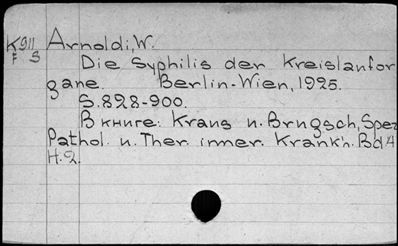 K911 Arnoldi, W.
F S
Die Syphilis der Kreislaufor
gane. Berlin-Wien, 1925.
S. 828-900.
В книге: Kraus u. Brugsch, Spez
Pathol. u. Ther. inner. Krankh. Bd. 4
H. 2.